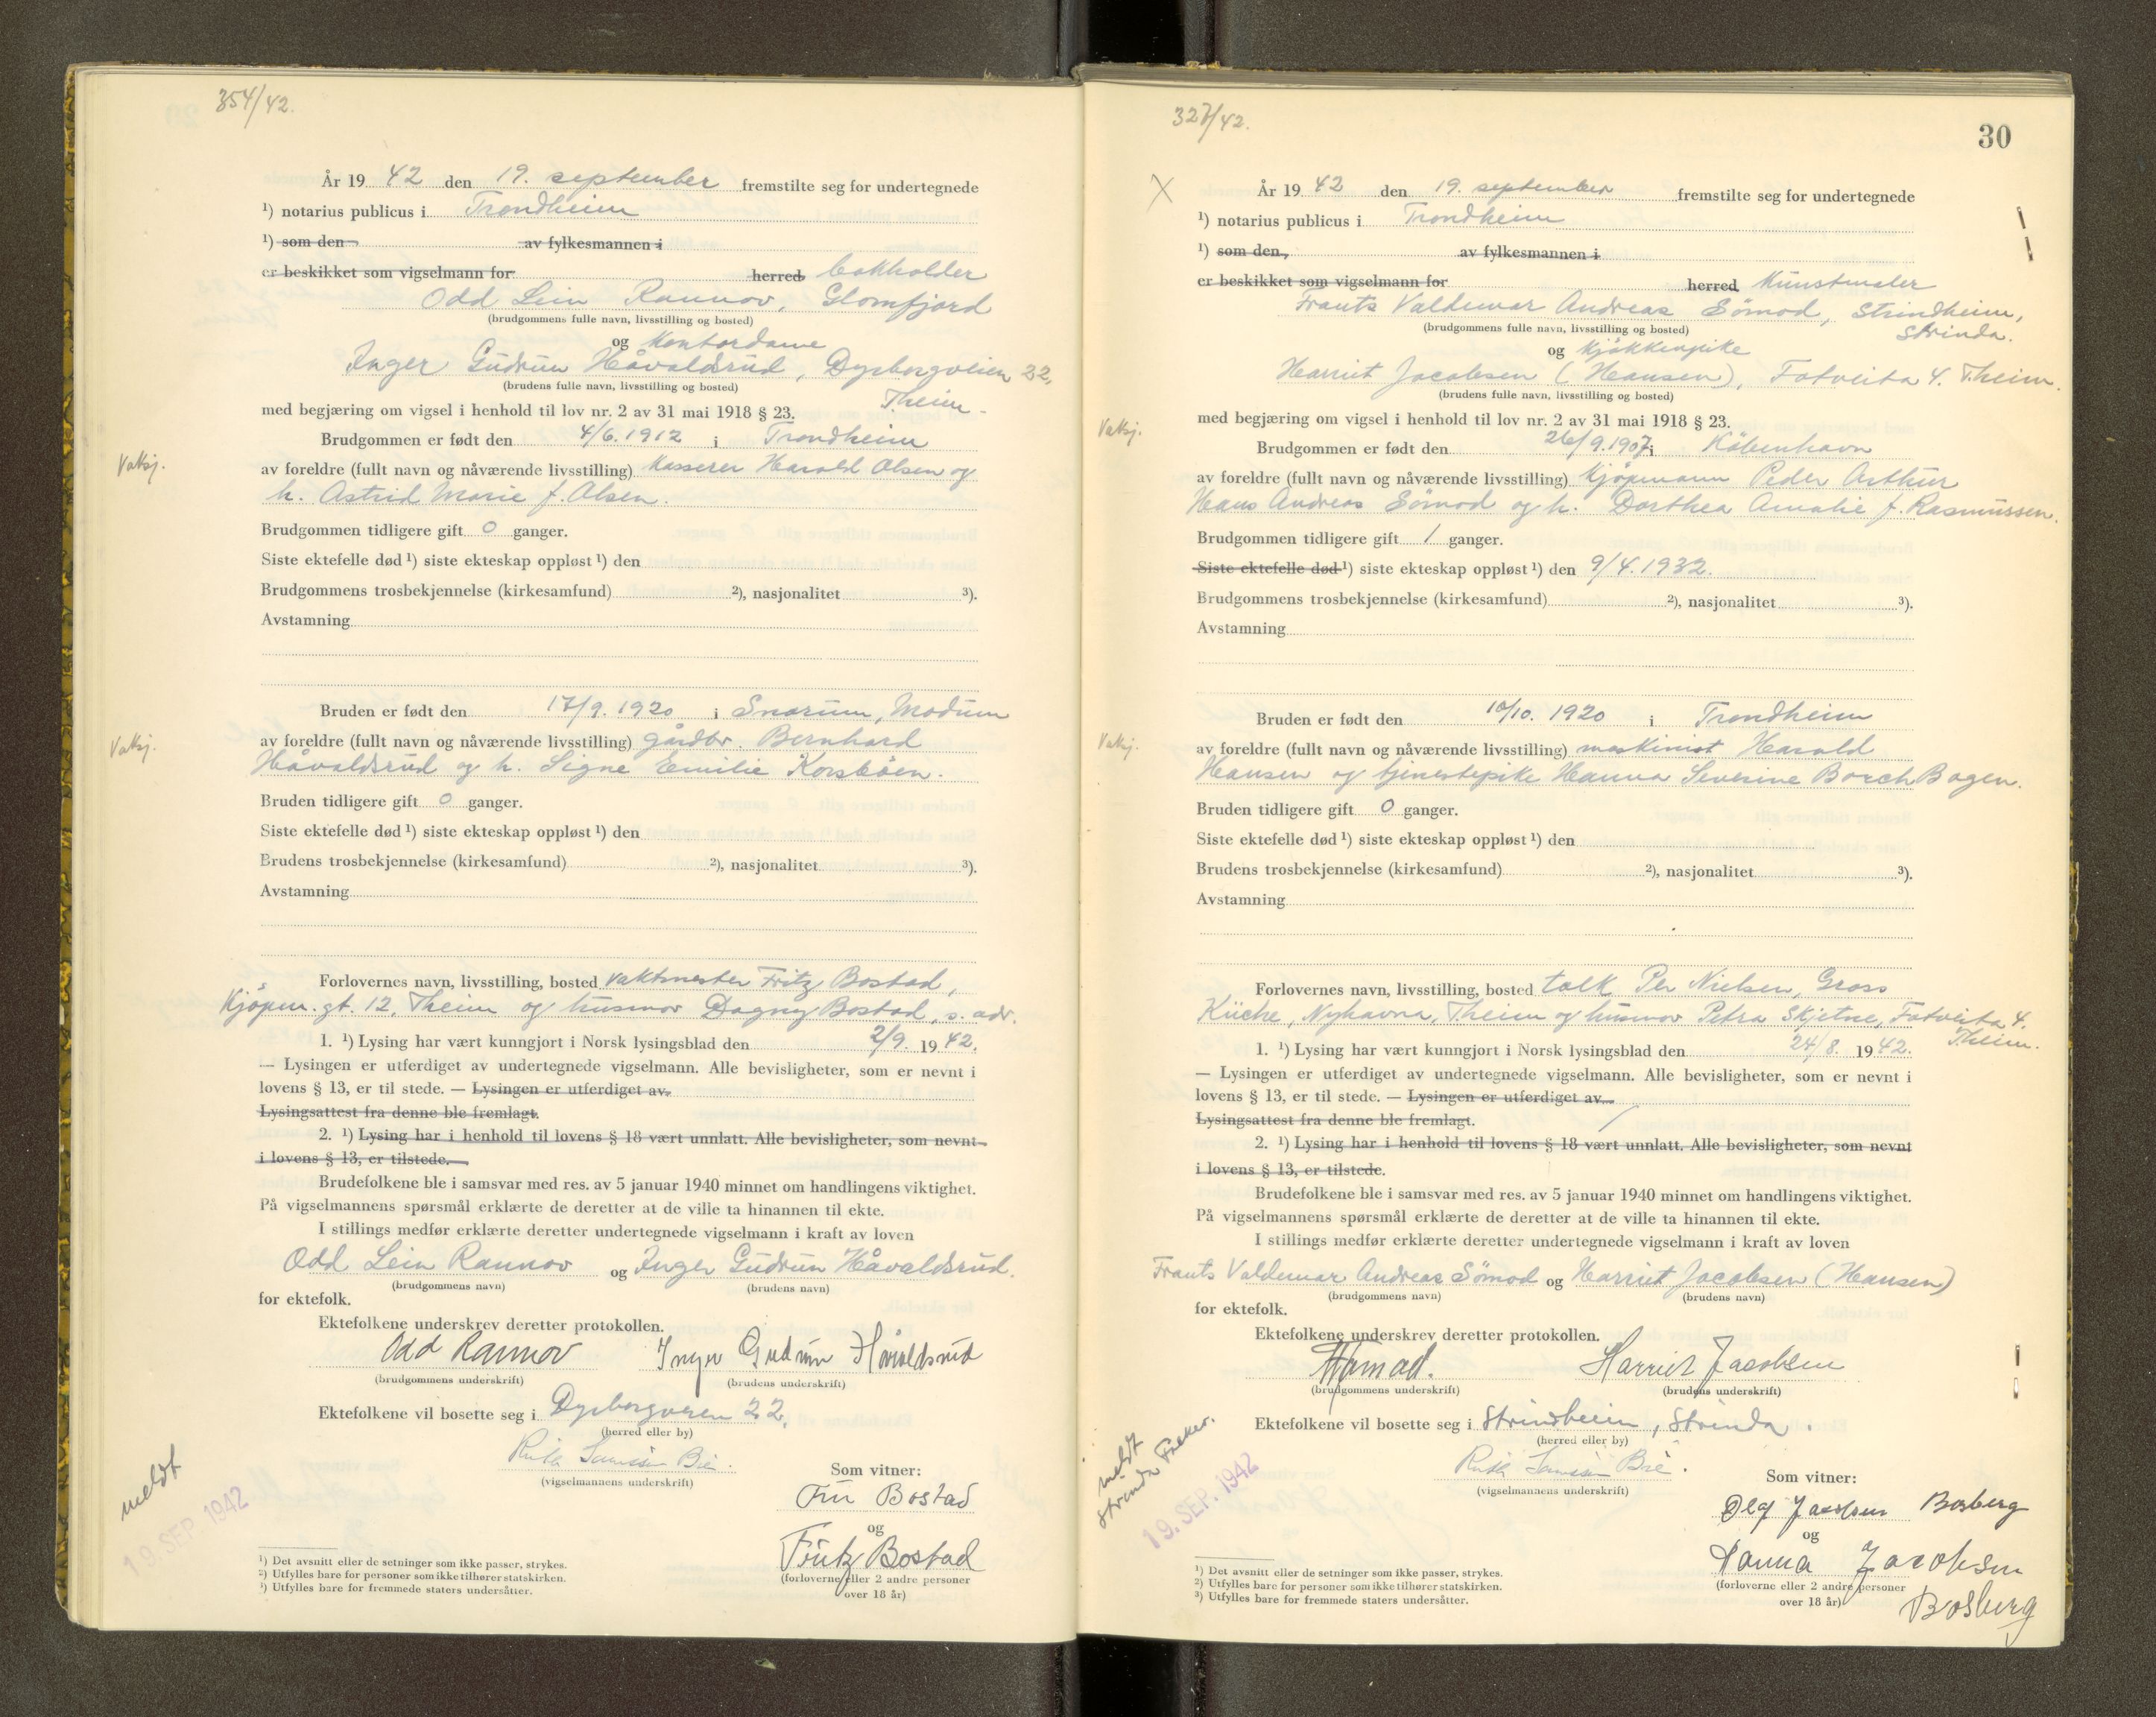 354/42.
År 19 42 den 19. september fremstilte seg for undertegnede
¹) notarius publicus i Trondheim
¹) som den av fylkesmannen i
er beskikket som vigselmann for herred. bokholder
Odd Lein Rannov, Glomfjord
(brudgommens fulle navn, livsstilling og bosted)
og kontordame
Inger Gudrun Håvaldsrud, Dyrborgveien 22,
(brudens fulle navn, livsstilling og bosted)
T.heim.
med begjæring om vigsel i henhold til lov nr. 2 av 31 mai 1918 § 23.
Brudgommen er født den 4/6. 1912 i Trondheim
Vaksj.
av foreldre (fullt navn og nåværende livsstilling) kasserer Harald Olsen og
h. Astrid Marie f. Olsen.
Brudgommen tidligere gift 0 ganger.
Siste ektefelle død ¹) siste ekteskap oppløst ¹) den
Brudgommens trosbekjennelse (kirkesamfund) ²), nasjonalitet ³).
Avstamning
Bruden er født den 17/9. 1920 i Snarum, Modum
Vaksj.
av foreldre (fullt navn og nåværende livsstilling) gårdbr. Bernhard
Håvaldsrud og h. Signe Emilie Korsbøen.
Bruden tidligere gift 0 ganger.
Siste ektefelle død ¹) siste ekteskap oppløst ¹) den
Brudens trosbekjennelse (kirkesamfund) ²), nasjonalitet ³).
Avstamning
Forlovernes navn, livsstilling, bosted vaktmester Fritz Bostad,
Kjøpm. gt. 12, T.heim og husmor Dagny Bostad, s. adr.
1. ¹) Lysing har vært kunngjort i Norsk lysingsblad den 2/9. 19 42.
— Lysingen er utferdiget av undertegnede vigselmann. Alle bevisligheter, som er nevnt i
lovens § 13, er til stede. — Lysingen er utferdiget av
Lysingsattest fra denne ble fremlagt.
2. ¹) Lysing har i henhold til lovens § 18 vært unnlatt. Alle bevisligheter, som nevnt
i lovens § 13, er tilstede.
Brudefolkene ble i samsvar med res. av 5 januar 1940 minnet om handlingens viktighet.
På vigselmannens spørsmål erklærte de deretter at de ville ta hinannen til ekte.
I stillings medfør erklærte deretter undertegnede vigselmann i kraft av loven
Odd Lein Rannov og Inger Gudrun Håvaldsrud.
(brudgommens navn) (brudens navn)
for ektefolk.
Ektefolkene underskrev deretter protokollen.
Odd Rannov Inger Gudrun Håvaldsrud
(brudgommens underskrift) (brudens underskrift)
Ektefolkene vil bosette seg i Dyrborgveien 22.
(herred eller by)
(vigselmannens underskrift)
Som vitner:
Fru Bostad
og
Fritz Bostad
(forloverne eller 2 andre personer
over 18 år)
meldt
19. SEP. 1942
¹) Det avsnitt eller de setninger som ikke passer, strykes.
²) Utfylles bare for personer som ikke tilhører statskirken.
³) Utfylles bare for fremmede staters undersåtter.
327/42.
30
X
År 19 42 den 19. september fremstilte seg for undertegnede
¹) notarius publicus i Trondheim
¹) som den av fylkesmannen i
er beskikket som vigselmann for herred kunstmaler
Frants Valdemar Andreas Sömod, Strindheim,
(brudgommens fulle navn, livsstilling og bosted)
Strinda.
og kjøkkenpike
Harriet Jacobsen (Hansen), Fotveita 4. T.heim.
(brudens fulle navn, livsstilling og bosted)
med begjæring om vigsel i henhold til lov nr. 2 av 31 mai 1918 § 23.
Vaksj.
Brudgommen er født den 26/9. 1907 i København
av foreldre (fullt navn og nåværende livsstilling) Kjøpmann Peder Arthur
Hans Andreas Sömod og h. Dorthea Amalie f. Rasmussen.
Brudgommen tidligere gift 1 ganger.
Siste ektefelle død ¹) siste ekteskap oppløst ¹) den 9/4. 1932.
Brudgommens trosbekjennelse (kirkesamfund) ²), nasjonalitet ³).
Avstamning
Bruden er født den 10/10. 1920 i Trondheim
Vaksj.
av foreldre (fullt navn og nåværende livsstilling) maskinist Harald
Hansen og tjenestepike Hanna Severine Borch Bagen.
Bruden tidligere gift 0 ganger.
Siste ektefelle død ¹) siste ekteskap oppløst ¹) den
Brudens trosbekjennelse (kirkesamfund) ²), nasjonalitet ³).
Avstamning
Forlovernes navn, livsstilling, bosted tolk Per Nielsen, Gross
Küche, Nyhavna, T.heim og husmor Petra Skjetne, Fotveita 4.
T.heim.
1. ¹) Lysing har vært kunngjort i Norsk lysingsblad den 24/8. 19 42.
— Lysingen er utferdiget av undertegnede vigselmann. Alle bevisligheter, som er nevnt i
lovens § 13, er til stede. — Lysingen er utferdiget av
Lysingsattest fra denne ble fremlagt.
2. ¹) Lysing har i henhold til lovens § 18 vært unnlatt. Alle bevisligheter, som nevnt
i lovens § 13, er tilstede.
Brudefolkene ble i samsvar med res. av 5 januar 1940 minnet om handlingens viktighet.
På vigselmannens spørsmål erklærte de deretter at de ville ta hinannen til ekte.
I stillings medfør erklærte deretter undertegnede vigselmann i kraft av loven
Frants Valdemar Andreas Sömod og Harriet Jacobsen (Hansen)
(brudgommens navn) (brudens navn)
for ektefolk.
Ektefolkene underskrev deretter protokollen.
Harriet Jacobsen
(brudgommens underskrift) (brudens underskrift)
Ektefolkene vil bosette seg i Strindheim, Strinda.
(herred eller by)
(vigselmannens underskrift)
Som vitner:
Olaf Jacobsen Bosberg
og
Hanna Jacobsen
Bosberg
(forloverne eller 2 andre personer
over 18 år)
meldt
Strinda
19. SEP. 1942
¹) Det avsnitt eller de setninger som ikke passer, strykes.
²) Utfylles bare for personer som ikke tilhører statskirken.
³) Utfylles bare for fremmede staters undersåtter.